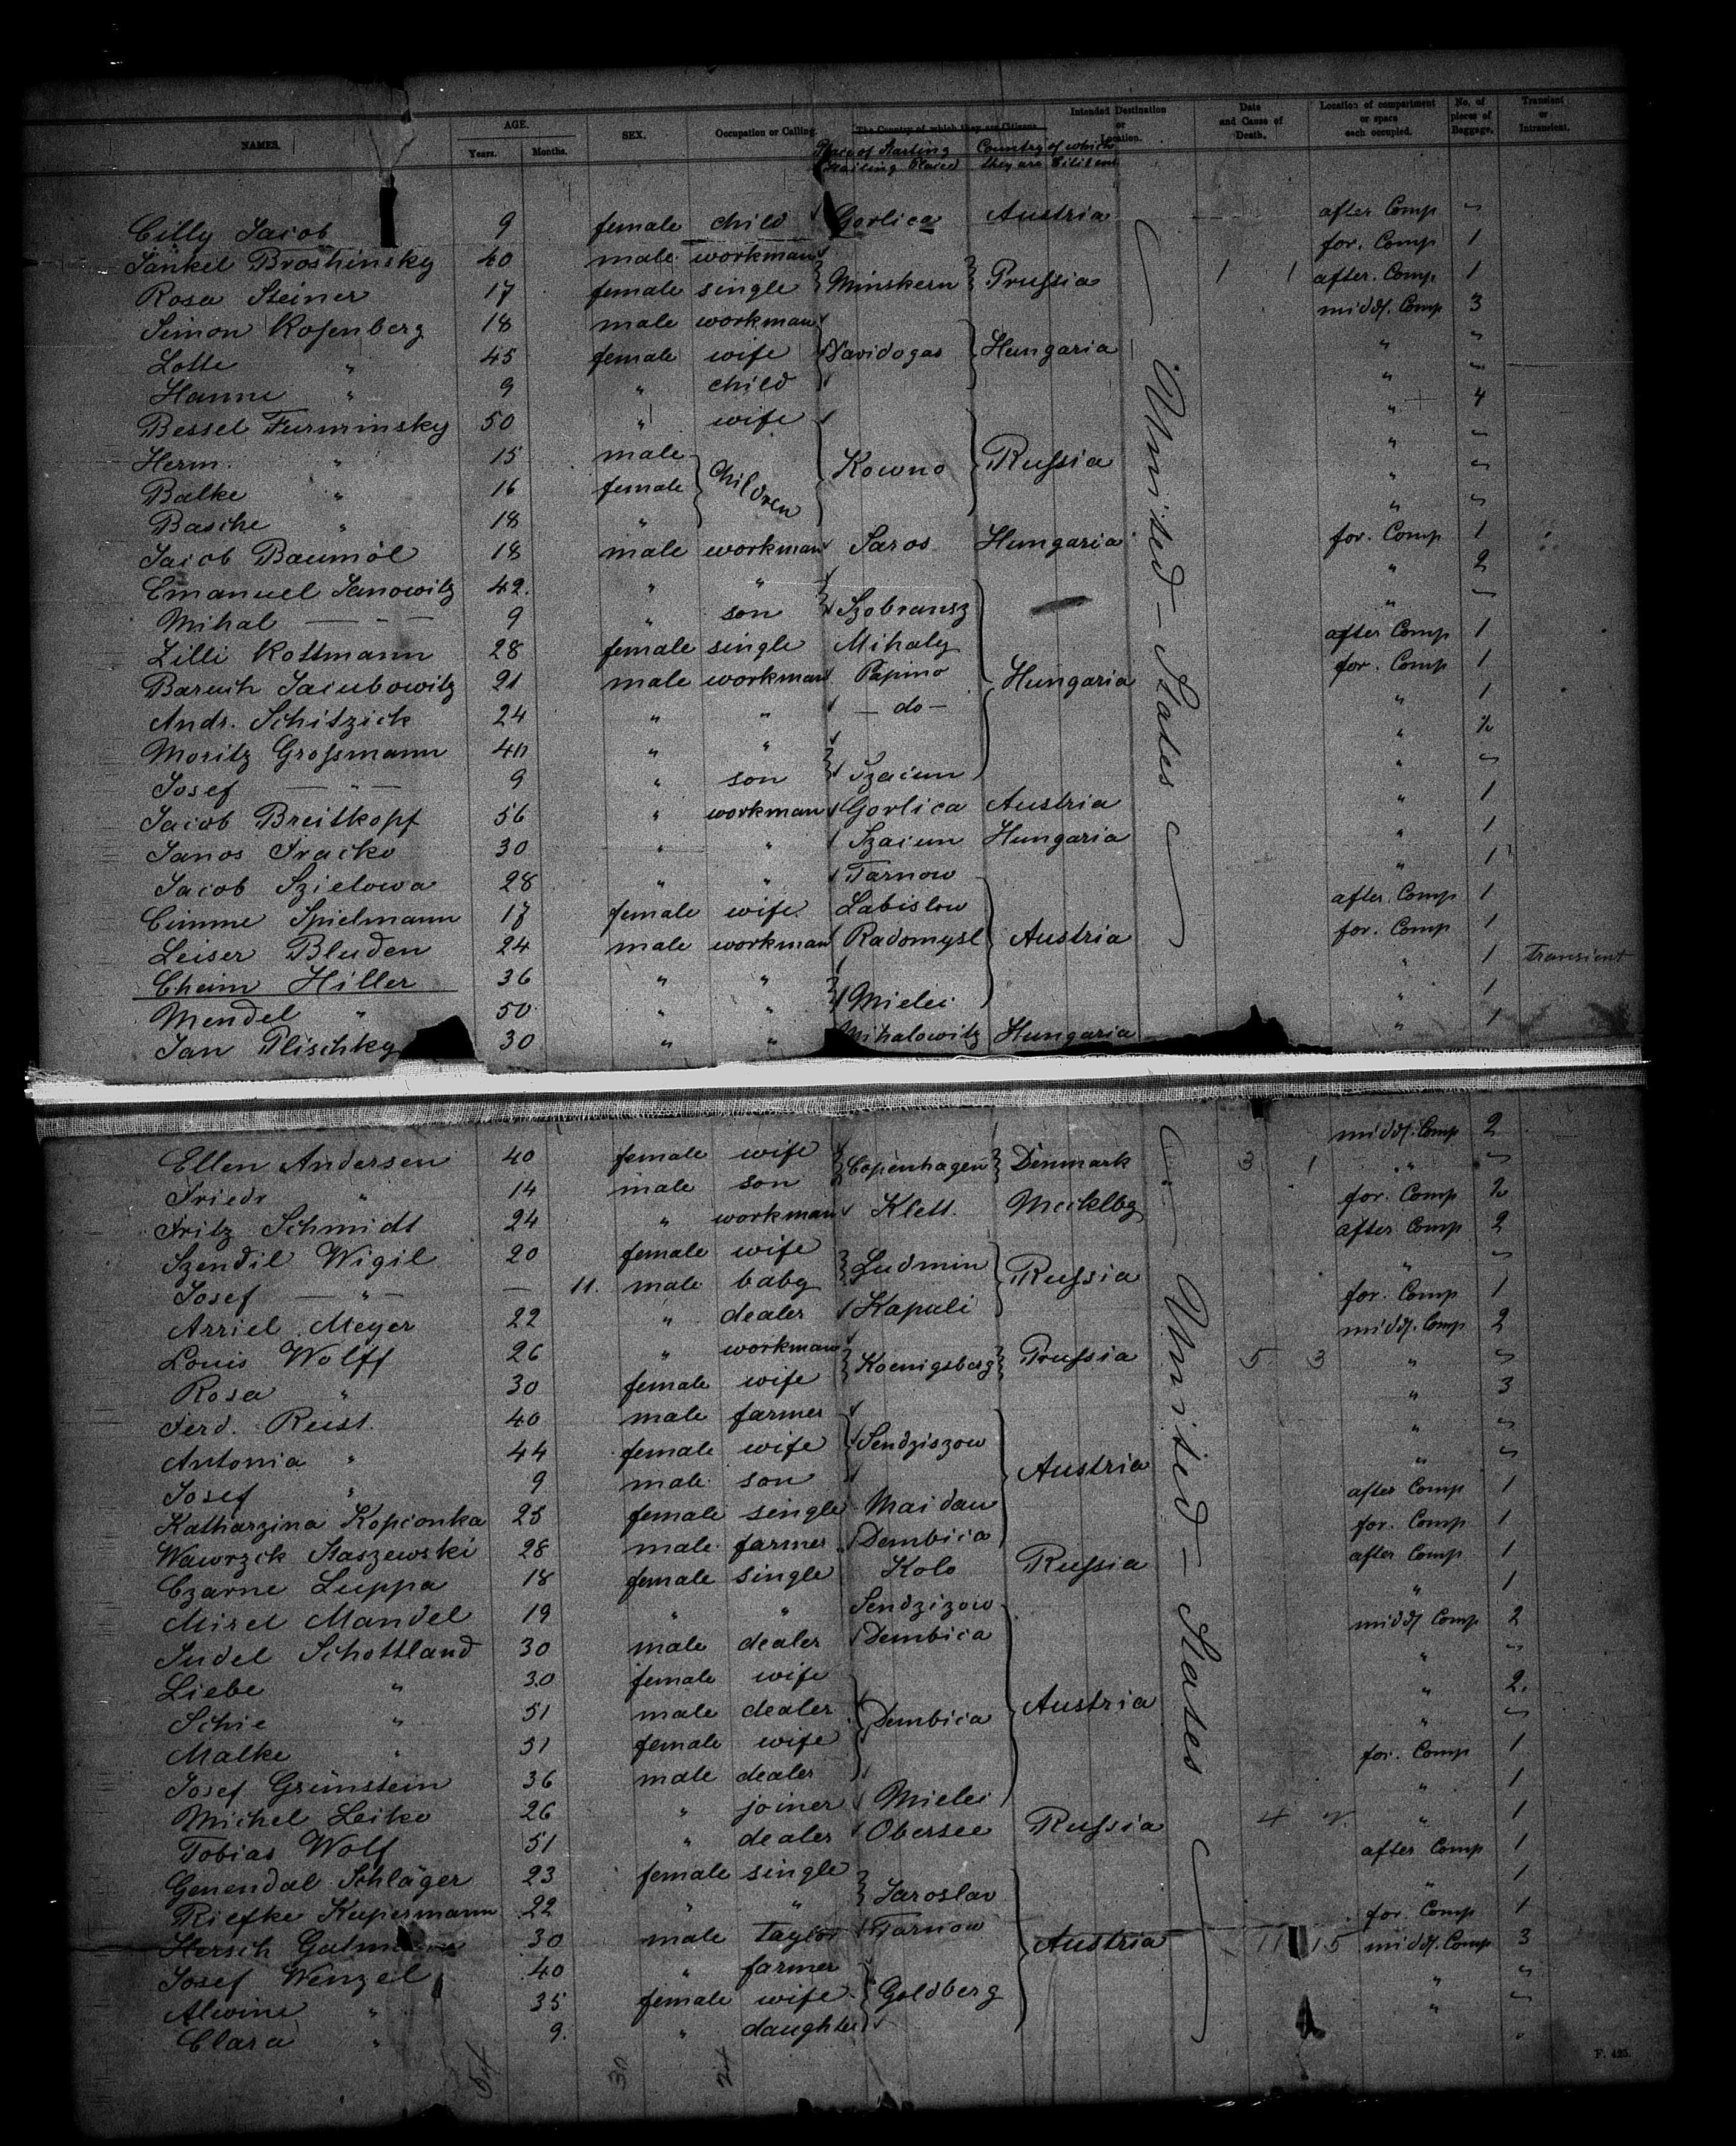 NAMES. AGE. Years. Months. SEX. Occupation or Calling. The Country of which they are Citizens. Intended Destination or Location. Date and Cause of Death. Location of compartment or space each occupied. No. of pieces of Baggage. Transient or Intransient.
Place of Starting Country of which they are Citizens
Cilly Jacob 9 female child Gorlica Austria after Comp "
Jankel Broshinsky 40 male workman for. Comp 1
Rosa Steiner 17 female single Minskern Prussia 1 1 after. Comp 1
Simon Rosenberg 18 male workman midd. Comp 3
Lotte " 45 female wife Davidogas Hungaria " "
Hanne " 9 " child " "
Bessel Furminsky 50 " wife " 4
Herm. " 15 male Children Kowno Russia " "
Balke " 16 female " "
Basche " 18 " " "
Jacob Baumöl 18 male workman Saros Hungaria for. Comp 1
Emanuel Janowitz 42. " " " 2
Mihal — " — 9 " son Szobransz " "
Lilli Kottmann 28 female single Mihaly after Comp 1
Baruch Jacubowitz 21 male workman Papino Hungaria for. Comp 1
Andr. Schitzick 24 " " — do — " 1
Moritz Grossmann 40 " " " 2
Josef — " — 9 " son Szacun " "
Jacob Breitkopf 56 " workman Gorlica Austria " 1
Janos Tracko 30 " " Szacun Hungaria " 1
Jacob Szielowa 28 " " Tarnow " 1
Cimme Spielmann 17 female wife. Labislow after. Comp 1
Leiser Bluden 24 male workman Radomysl Austria for. Comp 1
Cheim Hiller 36 " " " 1 Transient
Mendel " 50 " " Mielec " 1
Jan Plischky 30 " " Mihalowitz Hungaria " 1
United — States
Ellen Andersen 40 female wife Copenhagen Denmark midd. Comp 2
Friedr " 14 male son 3 1 " "
Fritz Schmidt 24 " workman Klett. Mecklbg for. Comp 2
Szendil Wigil 20 female wife Ludmin Russia after Comp 2
Josef — " — — 11. male baby " "
Arriel Meyer 22 " dealer Kapuli for. Comp 1
Louis Wolff 26 " workman Koenigsberg Prussia midd. Comp 2
Rosa " 30 female wife 5 3 " "
Ferd. Reist. 40 male farmer " 3
Antonia " 44 female wife Sendziszow Austria " "
Josef " 9 male son " "
Katharzina Kopionka 25 female single Maidan after Comp 1
Wawrzck Staszewski 28 male farmer Dembica for. Comp 1
Czarne Luppa 18 female single Kolo Russia after Comp 1
Mirel Mandel 19 " " Sendzizow " 1
Judel Schottland 30 male dealer Dembica midd. Comp 2
Liebe " 30 female wife " "
Schie " 51 male dealer Dembica Austria " 2.
Malke " 51 female wife " "
Josef Grünstein 36 male dealer for. Comp 1
Michel Leiko 26 " joiner Mielec " 1
Tobias Wolf 51 " dealer Obersee Russia 4 " 1
Genendal Schläger 23 female single after Comp 1
Riefke Kupermann 22 " " Jaroslav " 1
Hersch Gutmann 30 male taylor Tarnow Austria for. Comp 1
Josef Wenzel 40 " farmer 11 15 midd. Comp 3
Alwine " 35 female wife Goldberg " "
Clara " 9. " daughter " "
United — States
54 30 24
F. 425.